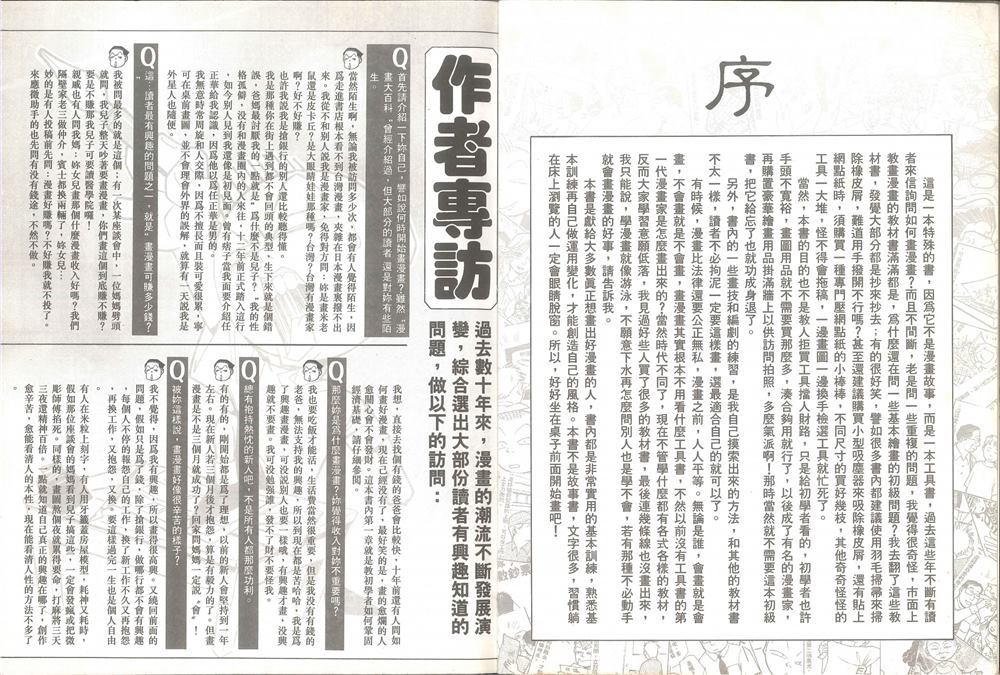 序
這是一本特殊的書，因為它不是漫畫故事，而是一本工具書，過去這些年不斷有讀
者來信詢問如何畫漫畫？而且不間斷，老是問一些重複的問題，我覺得很奇怪，市面上
教畫漫畫的教材書滿滿都是，為什麼還在問一些基本繪畫的初級問題？我去翻了這些教
材書，發覺大部分都是抄來抄去；有的很好笑，譬如說很多書內都建議使用羽毛掃帚來掃
除橡皮屑，難道用手撥開不行嗎？甚至還建議購買小型吸塵器來吸除橡皮屑，還有貼上
網點紙時，須購買一種專門壓網點紙的小棒棒，不同尺寸的要買好幾枝，其他奇奇怪怪的
工具一大堆，怪不得會拖稿，一邊畫圖一邊換手檢選工具就忙死了。
當然，本書的目的也不是教人拒買工具擋人財路，只是給初學者看的，初學者也許
手頭不寬裕，畫圖用品就不需要買那麼多，湊合夠用就行了，以後成了有名的漫畫家，
再購置豪華繪畫用品掛滿牆上以供訪問拍照，多麼氣派啊！那時當然就不需要這本初級
書，把它給忘了也就功成身退了。
另外，書內的一些畫技和編劇的練習，是我自己摸索出來的方法，和其他的教材書
不太一樣，讀者不必拘泥一定要這樣畫，選最適合自己的就可以了。
有時候，漫畫比法律還要公正無私，漫畫之前，人人平等。無論是誰，會畫就是會
畫，不會畫就是不會畫，畫漫畫其實根本不用看什麼工具書，不然以前沒有工具書的第
一代漫畫家是怎麼畫出來的？當然時代不同了，現在不管學什麼都有各式各樣的教材，
反而大家學習意願低落，我見過好些人買了很多的教材書，最後連幾條線也沒畫出來，
我只能說，學漫畫就像游泳，不願意下水再怎麼問別人也是學不會，若有那種不必動手
就會畫漫畫的好事，請告訴我。
本書是獻給大多數真正想畫出好漫畫的人，書內都是非常實用的基本訓練，熟悉基
本訓練再自己做運用變化，才能創造自己的風格。本書不是故事書，文字很多，習慣躺
在床上瀏覽的人一定會眼睛脫窗。所以，好好坐在桌子前面開始畫吧！
作者專訪
過去數十年來，漫畫的潮流不斷發展演
變，綜合選出大部份讀者有興趣知道的
問題，做以下的訪問：
Q
首先請介紹一下妳自己，譬如說何時開始畫漫畫？雖然“漫
畫大百科”曾經介紹過，但大部分的讀者還是對妳有些陌
生。
當然陌生啊，無論我被訪問多少次，都會有人覺得陌生，因
為走進書店根本看不到台灣漫畫，夾雜在日本漫畫裏撥不出
來。我從不和別人說我是漫畫家，免得對方問：妳是畫米老
鼠還是皮卡丘？是大眼睛娃娃那種嗎？台灣？台灣有漫畫家
啊？好不好賺？
也許我說我是搶銀行的別人還比較聽得懂。
我是那種你在街上遇到都不會回頭的典型，生下來就是個錯
誤，爸媽最討厭我的一點就是“為什麼不是兒子？”我的性
格孤僻，沒有和漫畫圈內的人來往，十二年前正式踏入這行
，如今別人見到我還像是初見面。曾有痞子當我面要介紹任
正華給我認識，因為他以為任正華是男的。
我無意時常周旋和人交際，因為不擅長而且裝可愛很累，寧
可在桌前畫圖，並不會理會外界的誤解，就算有一天說我是
外星人也隨便。
Q
這：讀者最有興趣的問題之一，就是“畫漫畫可賺多少錢？
”
我被問最多的就是這個；有一次某座談會中，一位媽媽劈頭
就問，我兒子整天吵著要畫漫畫，你們畫這個到底賺不賺？
要是不賺那我兒子可要讀醫學院囉！
親戚也有人問我媽：妳女兒畫那個什麼漫畫收入好嗎？我們
隔壁家老三做仲介，賓士都換兩輛了，妳女兒：
妙的是有人投稿前先問：漫畫好賺嗎？不好賺我就不投了。
來應徵助手的也先問有沒有錢途，不然不做。
我想，直接去找個有錢的爸爸會比較快，十年前還有人問如
何畫好漫畫，現在已經沒了，最好笑的是，畫的愈爛的人
愈關心會不會發財。這本書內第一章就是教初學者如何鞏固
經濟基礎，請仔細參閱。
Q
那麼妳是為什麼畫漫畫？妳覺得收入對妳不重要嗎？
我也要吃飯才能活，生活費當然很重要，但是我沒有有錢的
老爸，無法支持我的興趣，我的現在都是苦哈哈，我是為
了興趣畫漫畫，可沒說別人也要一樣哦，有興趣才畫，沒興
趣就不要畫。我可沒勉強誰，發不了財不要怪我。
Q
總有抱持熱忱的新人吧，不是所有人都那麼功利。
有的有的，剛開始都是為了理想，以前的新人會堅持到一年
左右。現在新人若三個月後才抱怨，算是有毅力的了。但畫
漫畫是不是三個月就成功？回家問媽媽一定說“會”！
Q
被妳這樣說，畫漫畫好像很辛苦的樣子？
我不覺得，因為我有興趣，所以畫得很高興。又繞回前面的
問題，假如只是為了錢，除了搶銀行，做哪行都不會有興趣
，每個人不停的報怨自己的工作，換了新工作不久又再抱怨
，再換工作，又抱怨，又換。要這樣過完一生也是個人自由
。
有人在米粒上刻字，有人用牙籤蓋房屋模型，耗神又耗時，
假如那位座談會的媽媽看到兒子搞這些，一定會發瘋或把微
彫師傅掐死。同樣的，畫圖熬個夜就累得要命，打麻將三天
三夜還精神百倍。一點就知道自己真正的興趣在哪了，創作
愈辛苦，愈能看清人的本性，現在能看清人性的方法不多了
。